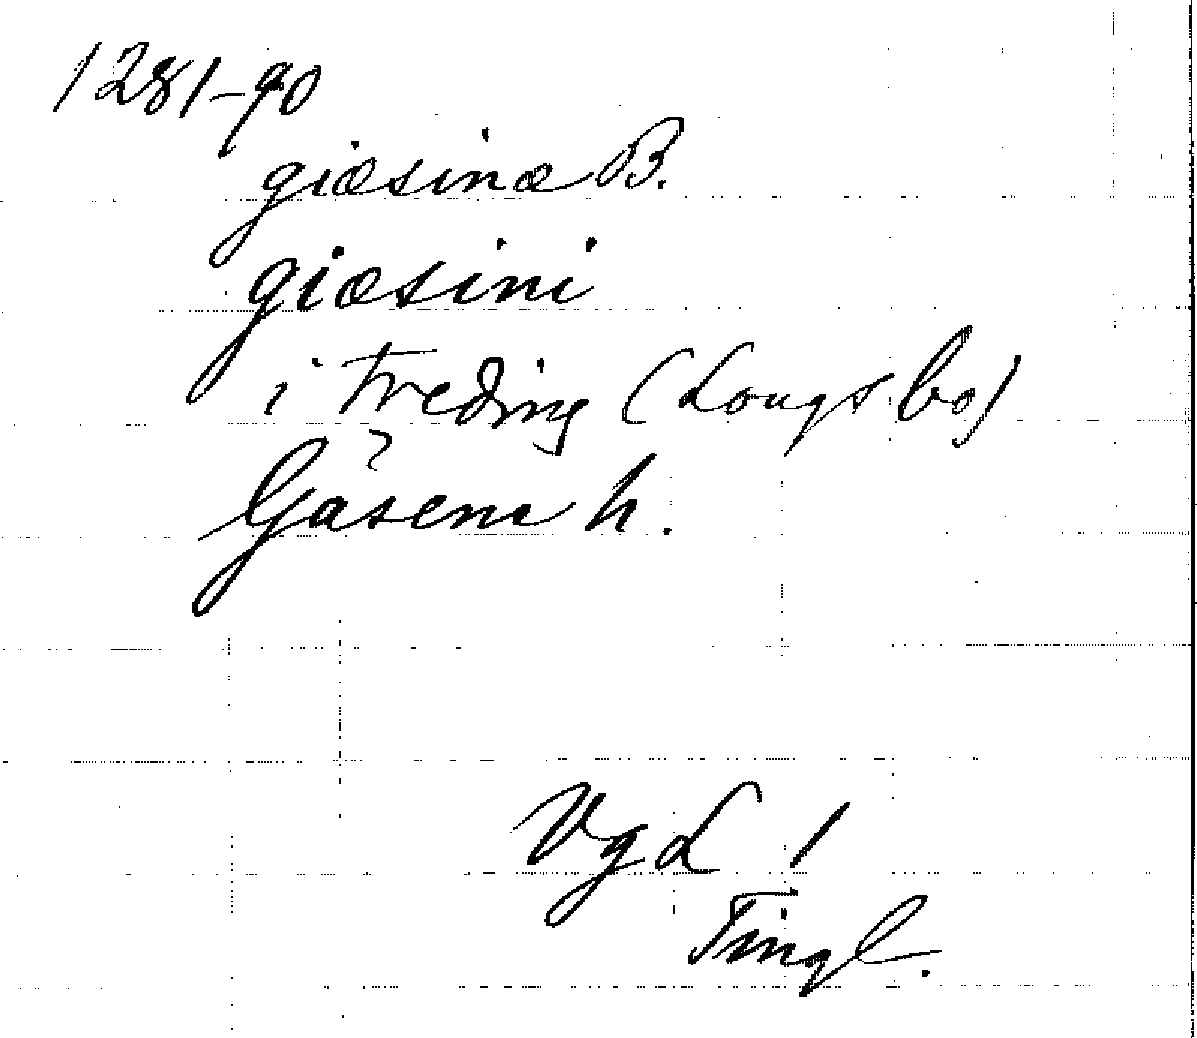 1281-90
giæsinæ B.
giæsini
i treding (Longs bo)
Gäsene h.
VgL 1
Tingl.